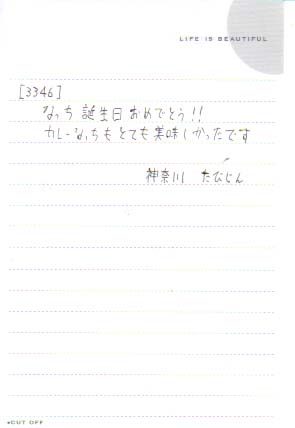 LIFE IS BEAUTIFUL
[3346]
なっち 誕生日 おめでとう!!
カレーなっちも とても 美味しかったです
神奈川 たびじん
*CUT OFF